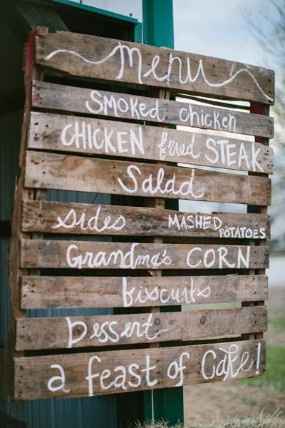 menu
Smoked Chicken
CHICKEN fried STEAK
Salad
Sides MASHED POTATOES
Grandma's CORN
biscuits
Dessert
a feast of Cake!